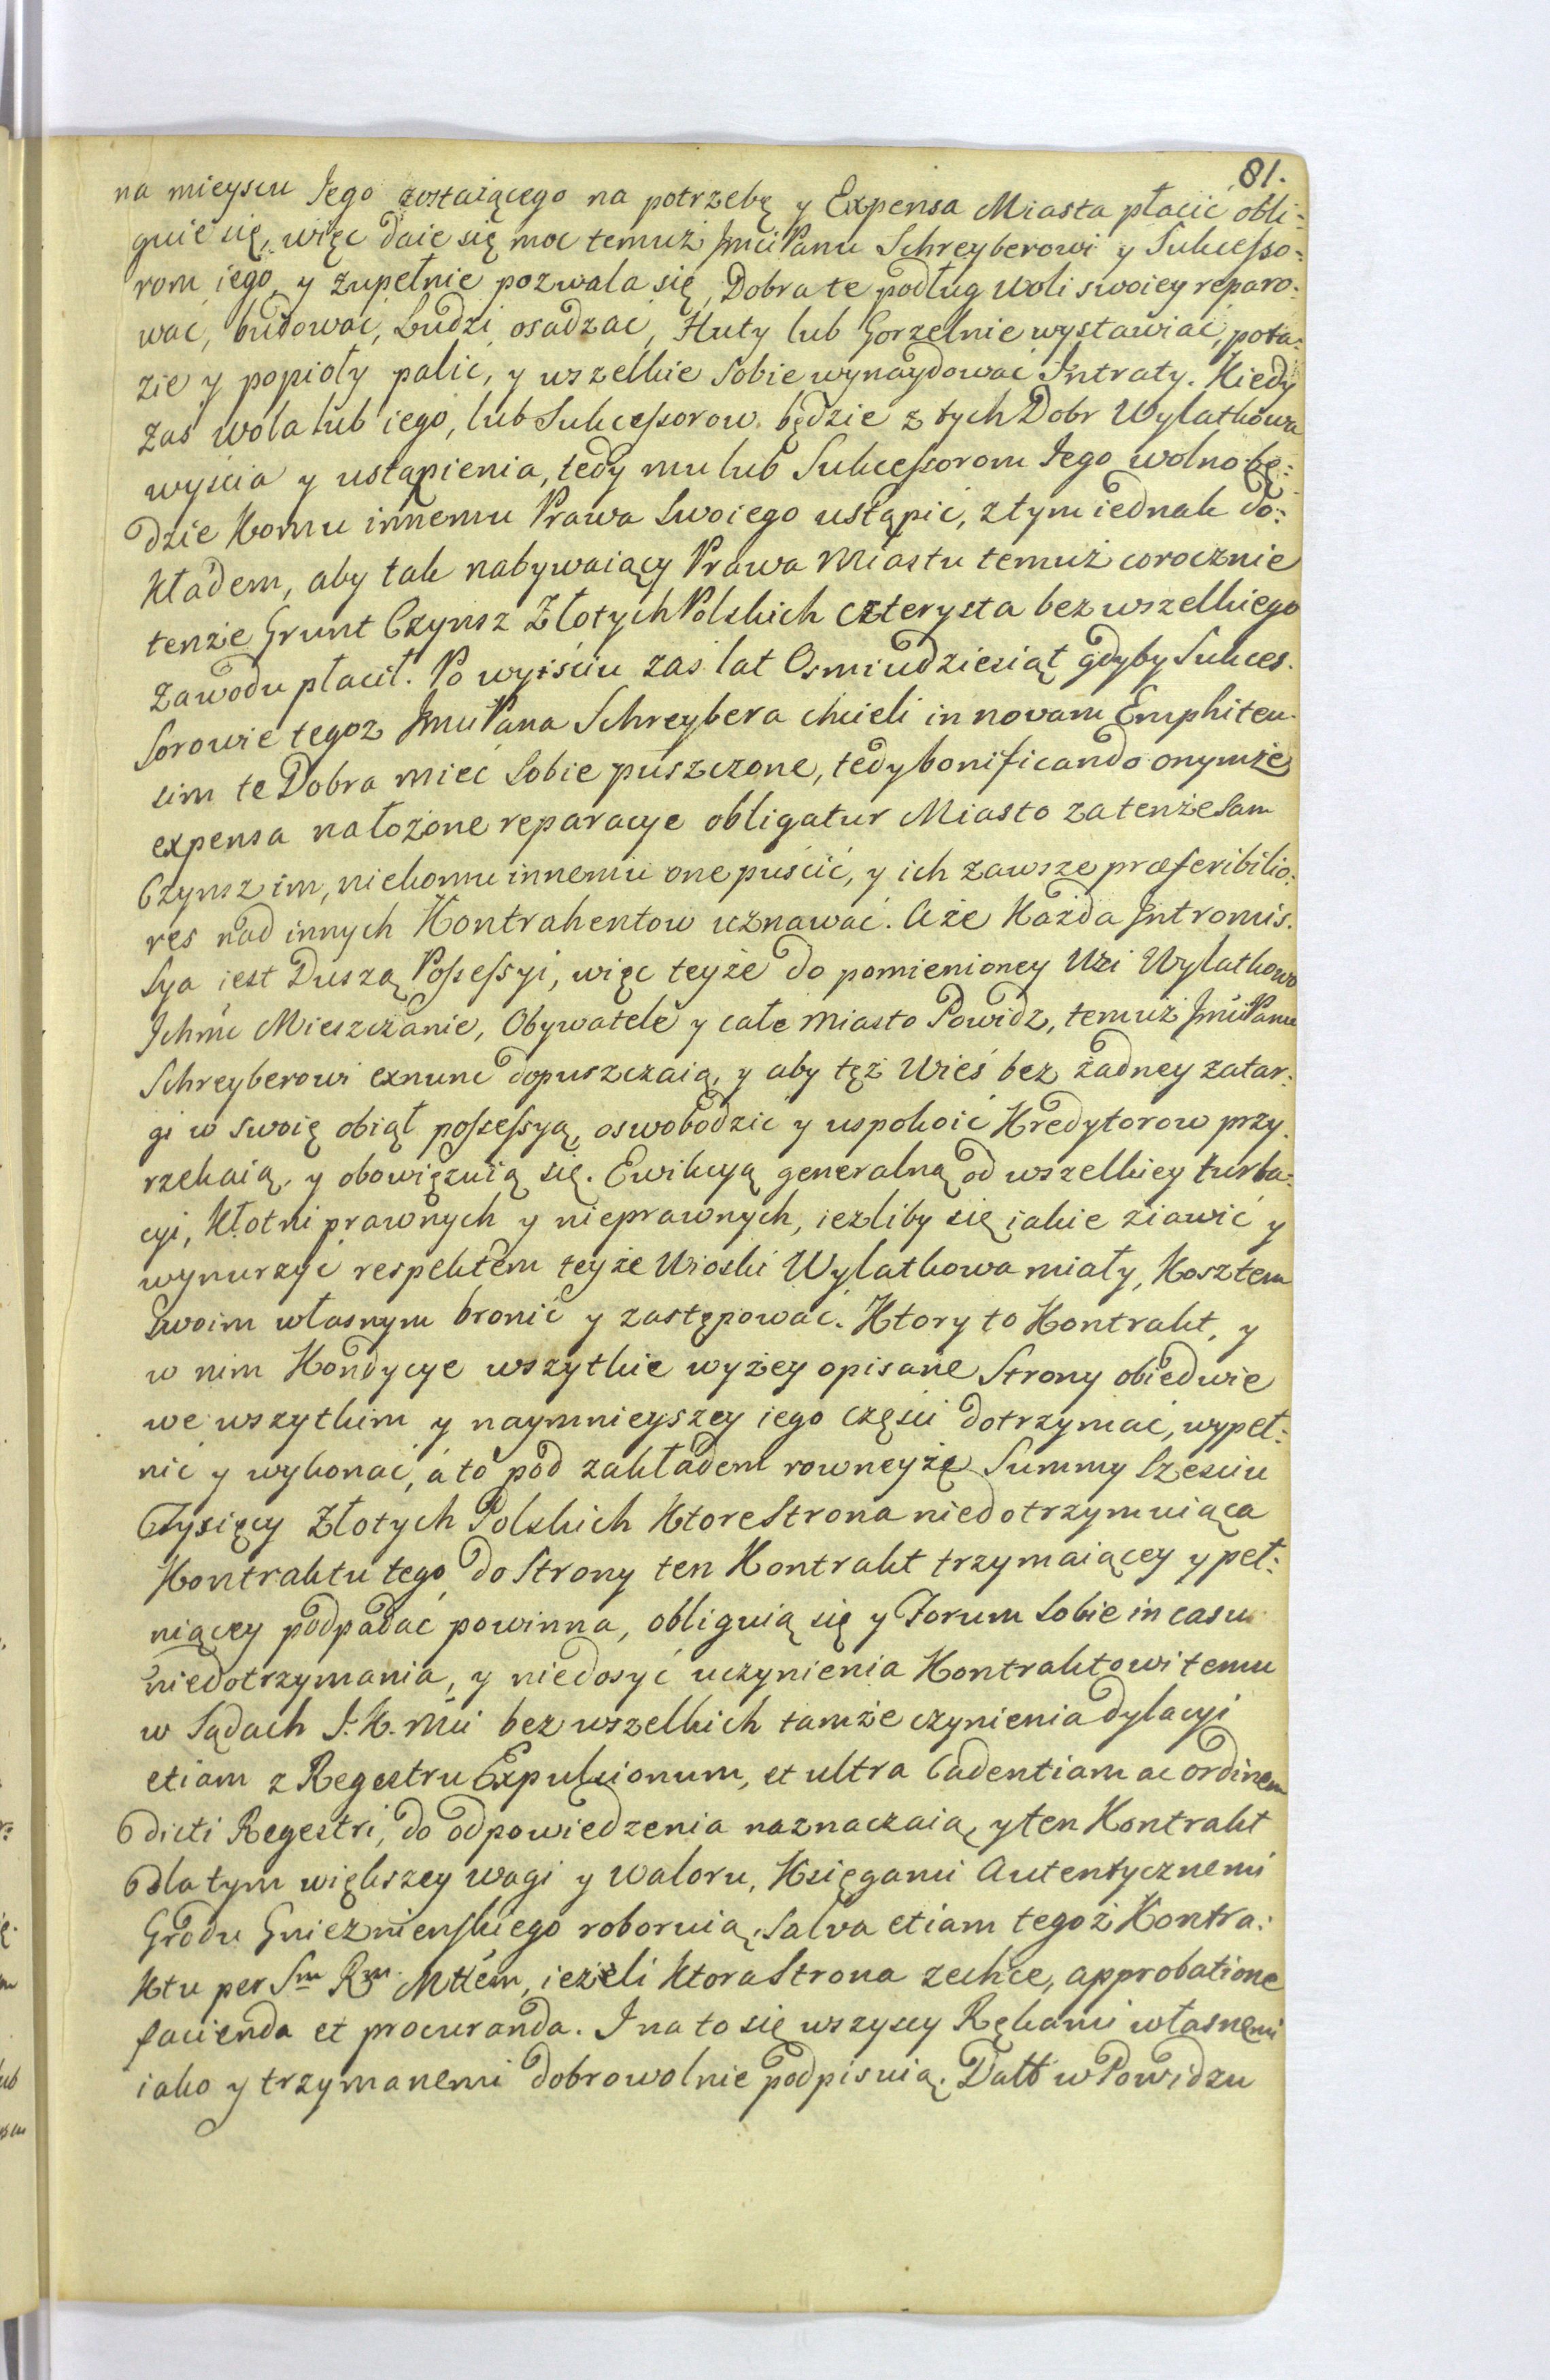 81.
na mieyscu Jego zostaiącego na potrzebę y Expensa Miasta płacić obli=
guie się, więc daie się moc temuż Jmci Panu Schreyberowi y Sukcesso=
rom iego, y zupełnie pozwala się, Dobra te podług woli swoiey reparo=
wać, budować, Ludzi osadzać, Huty lub Gorzelnie wystawiać, pota=
zie y popioły palić, y wszelkie sobie wynaydować Intraty. Kiedy
zas wola lub iego, lub Sukcessorow będzie z tych Dobr Wylatkowa
wyścia y ustąpienia, tedy mu lub Sukcessorom Jego wolno bę=
dzie Komu innemu Prawa Swoiego ustąpić, z tym iednak do=
kładem, aby tak nabywaiący Prawa Miastu temuż corocznie
tenże Grunt Czynsz Złotych Polskich czterysta bez wszelkiego
zawodu płacił. Po wyiściu zas lat Osmiudziesiąt gdyby Sukces.
sorowie tegoz Jmci Pana Schreybera chcieli in novam Emphiteu.
sim te Dobra mieć sobie puszczone, tedy bonificando onymże
expensa nałożone reparacye obligatur Miasto za tenże sam
Czynsz im, nie komu innemu one puścić, y ich zawsze præferibilio=
res nad innych Kontrahentow uznawać. Aże Każda Intromis.
sya iest Duszą Possessyi, więc teyże do pomienioney Wsi Wylatkowo
Ichmć Mieszczanie, Obywatele y całe Miasto Powidz, temuż Jmci Panu
Schreyberowi exnunc dopuszczaią, y aby tęż Wieś bez żadney zatar=
gi w swoię obiął possessyą, oswobodzić y uspokoić Kredytorow przy.
rzekaią, y obowięzuią się. Ewikcyą generalną od wszelkiey turba=
cyi, Kłotni prawnych y nieprawnych, iezliby się iakie ziawić y
wynurzyć respektem teyże Wioski Wylatkowa miały, Kosztem
Swoim własnym bronić y zastępować. Ktory to Kontrakt, y
w nim Kondycye wszytkie wyżey opisane Strony obiedwie
we wszytkim y naymnieyszey iego części dotrzymać, wypeł=
nić y wykonać, a to pod zakładem rowneyże Summy Szesciu
Tysięcy Złotych Polskich Ktore Strona niedotrzymuiąca
Kontraktu tego do Strony ten Kontrakt trzymaiącey y peł=
niącey podpadać powinna, obliguią się y Forum sobie in casu
niedotrzymania, y niedosyć uczynienia Kontraktowi temu
w Sądach J. K. Mci bez wszelkich tamże czynienia dylacyi
etiam z Regestru Expulsionum, et ultra Cadentiam ac ordinem
dicti Regestri, do odpowiedzenia naznaczaią, y ten Kontrakt
dla tym większey wagi y waloru, Księgami Autentycznemi
Grodu Gnieznienskiego roboruią, Salva etiam tegoż Kontra=
ktu per Sm Rm Mttem, ieżeli Ktora Strona zechce, approbatione
facienda et procuranda. I na to się wszyscy Rękami własnemi
iako y trzymanemi dobrowolnie podpisuią. Datt w Powidzu